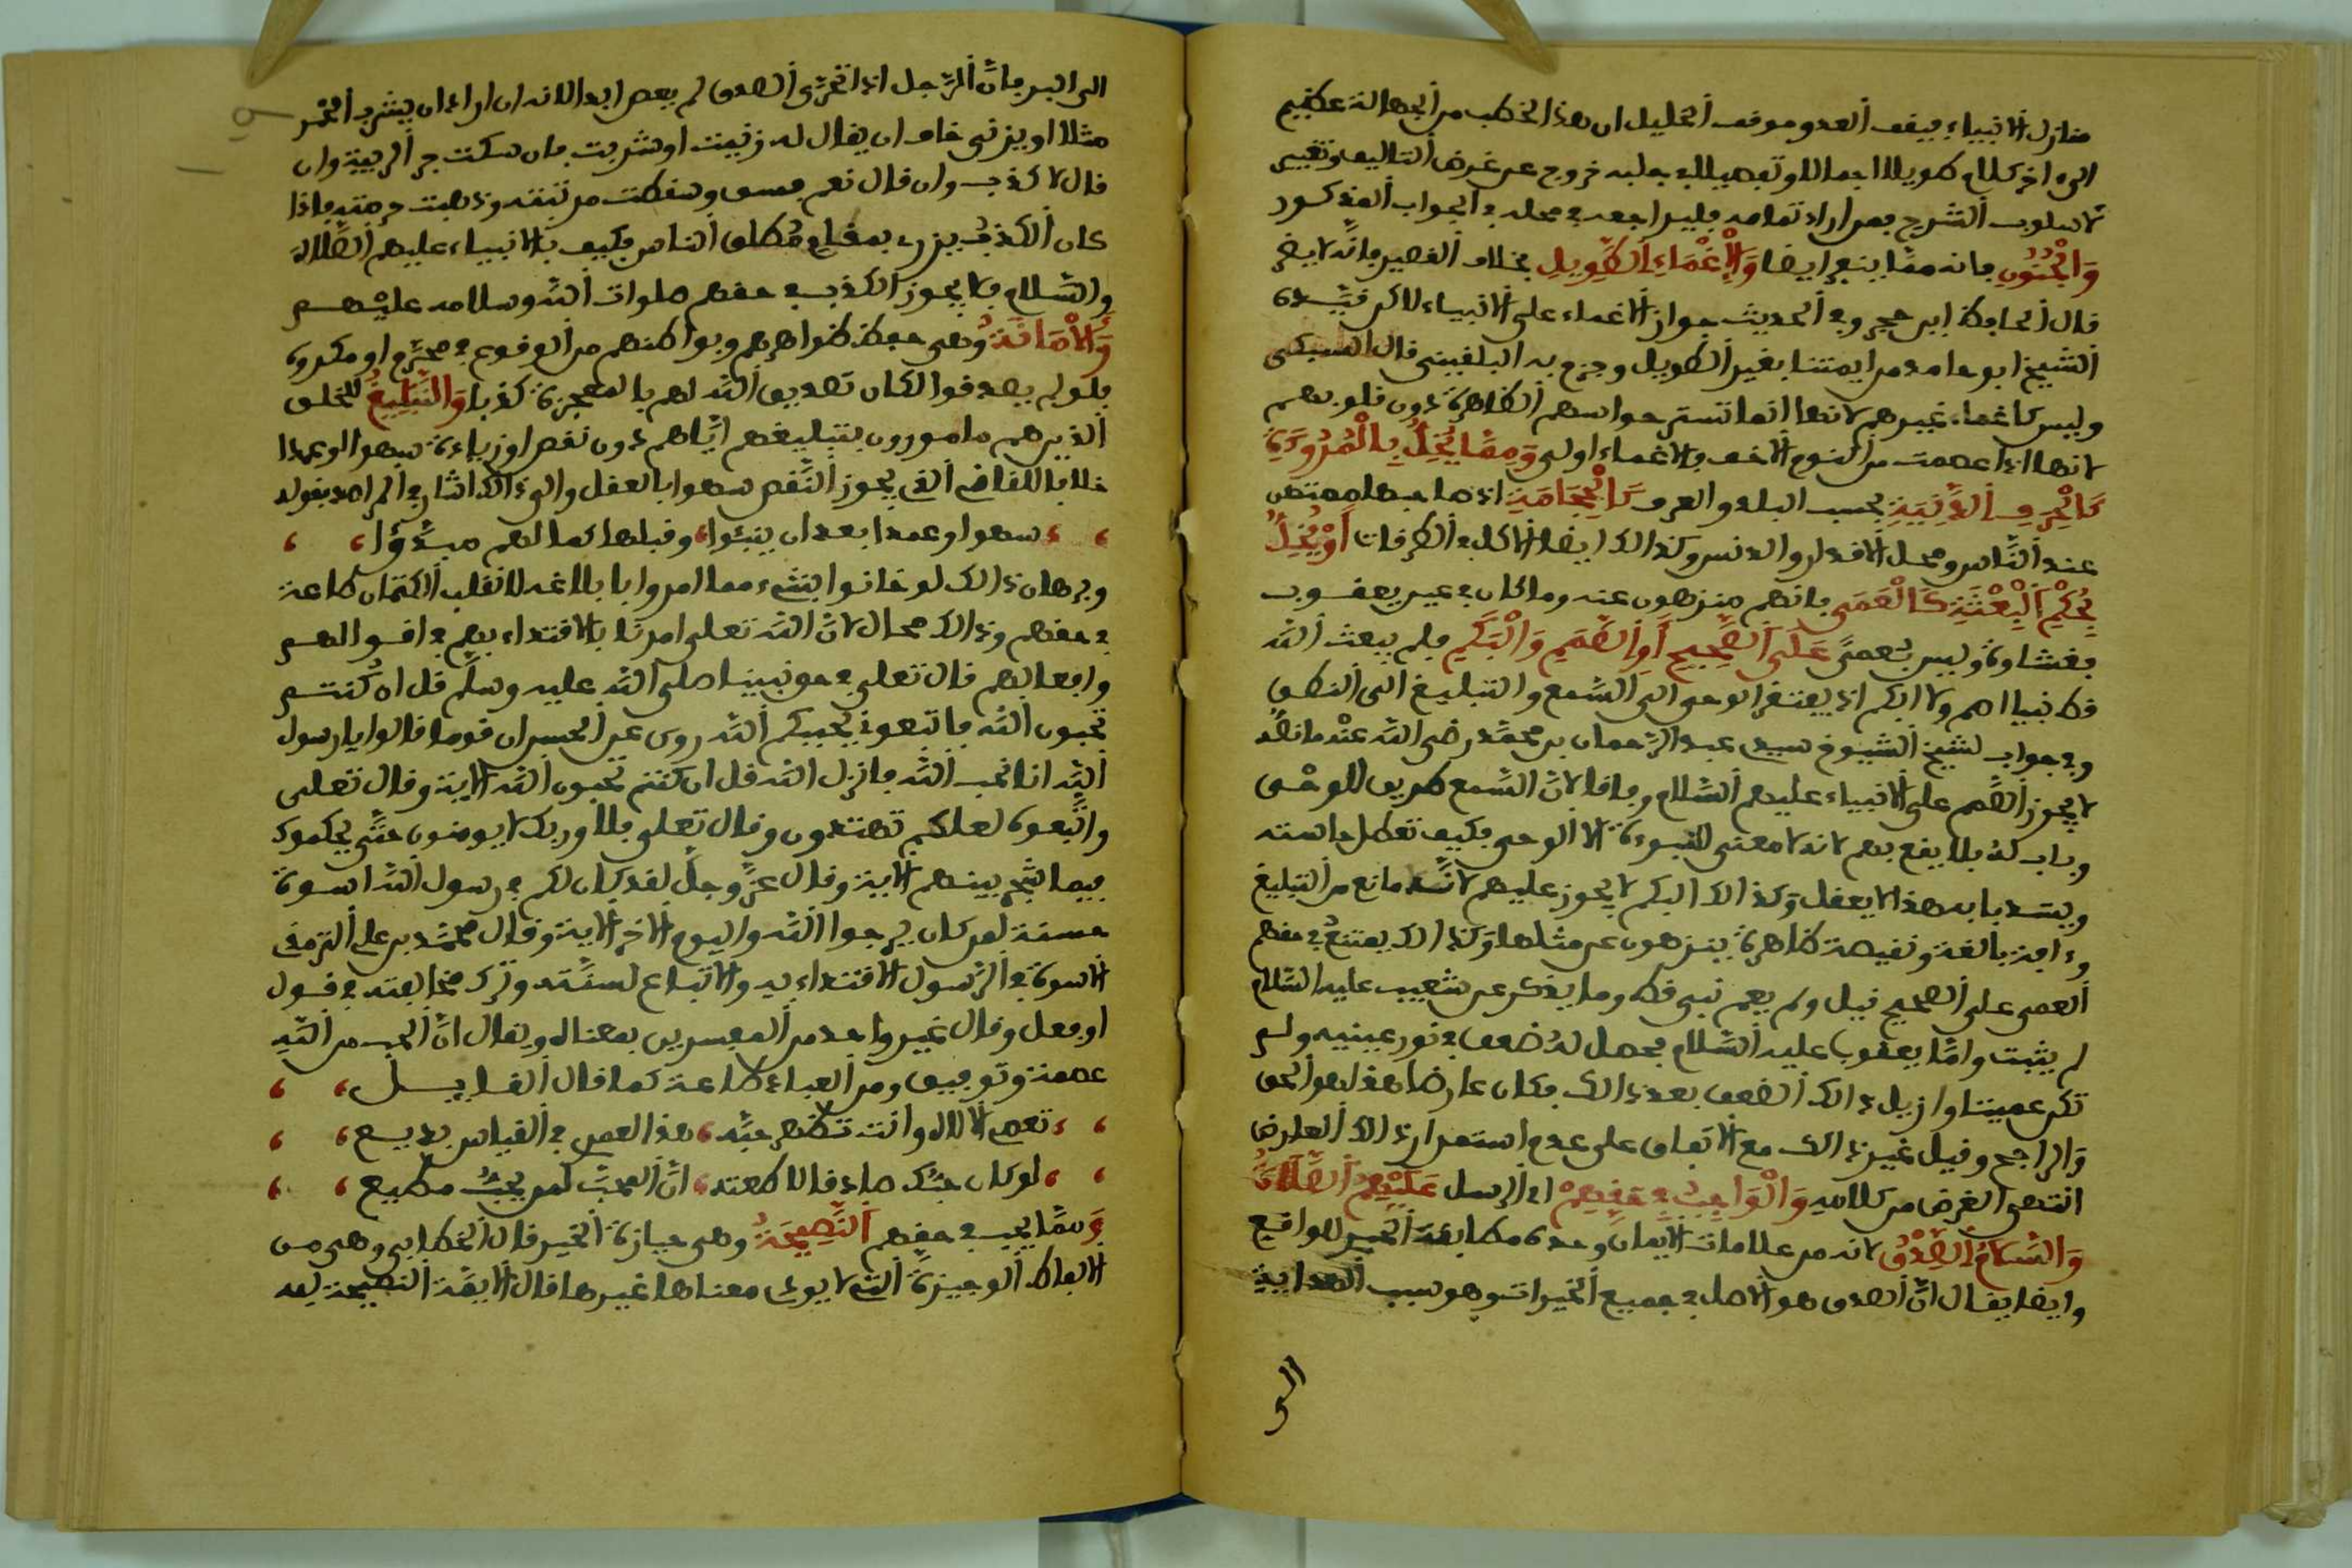 منازل الانبياء فيقف العدو موقف الخليل ان هذا الخطب من الجهالة عظيم
الى اخر كلام طويل اجمالا وتفصيلا في جلبه خروج عن غرض التاليف وتغيير
لاسلوب الشرح فمن اراد تمامه فليراجعه في محله في الجواب المذكور
وَالْجُنُونِ فانه مما ينفر ايضا وَالْإِغْمَاءِ الطَّوِيلِ بخلاف القصير فانه لا يضر
قال الحافظ ابن حجر وفي الحديث جواز الاغماء على الانبياء لاكن قيده
الشيخ ابو حامد من ايمتنا بغير الطويل وجزم به البلقيني قال السبكي
وليس كاغماء غيرهم لانها انما تستر حواسهم الظاهرة دون قلوبهم
لانها اذا عصمت من النوم الاخف فالاغماء اولى وَمِمَّا يُخِلُّ بِالْمُرُوَّةِ
كَالْحِرَفِ الدَّنِيَّةِ بحسب البلد والعرف كَالْحِجَامَةِ اذ صاحبها ممتهن
عند الناس ومحل الاقذار والدنس وكذالك ايضا الاكل في الطرقات أَوْ يُخِلُّ
بِحُكْمِ الْبِعْثَةِ كَالْعَمَى فانهم منزهون عنه وما كان في عين يعقوب
فغشاوة وليس بعمى عَلَى الصَّحِيحِ أَوِ الصَّمَمِ وَالْبَكَمِ فلم يبعث الله
قط نبيا اصم ولا ابكم اذ يفتقر الوحي الى السمع والتبليغ الى النطق
وفي جواب لشيخ الشيوخ سيدي عبد الرحمان بن محمد رضي الله عنه ما نصه
لا يجوز الصمم على الانبياء عليهم السلام وفاقا لان السمع طريق للوحي
وباب له بلا يقع بهم لانه لا معنى للنبوءة الا الوحي فكيف تعطل حاسته
ويسد بابه هذا لا يعقل وكذالك البكم لا يجوز عليهم لانه مانع من التبليغ
وءافة بالغة ونقيصة ظاهرة ينزهون عن مثلها وكذالك يمتنع في حقهم
العمى على الصحيح قيل ولم يعم نبي قط وما يذكر عن شعيب عليه السلام
لم يثبت واما يعقوب عليه السلام فحصل له ضعف في نور عينيه ولم
تكن عميتا وازيل ذالك الضعف بعد ذالك فكان عارضا هذا هو الحق
والراجح وقيل غير ذالك مع الاتفاق على عدم استمرار ذالك العارض
انتهى الغرض من كلامه وَالْوَاجِبُ فِي حَقِّهِمْ اي الرسل عَلَيْهِمُ الصَّلَاةُ
وَالسَّلَامُ الصِّدْقُ لانه من علامات الايمان وحده مطابقة الخبر للواقع
وايضا يقال ان الصدق هو الاصل في جميع الخيرات وهو سبب الهداية
الى
الى البر فان الرجل اذا تحرى الصدق لم يعص ابدا لانه ان اراد ان يشرب الخمر
مثلا او يزني خاف ان يقال له زنيت او شربت فان سكت جر الريبة وان
قال لا كذب وان قال نعم فسق وسقطت مرتبته وذهبت حرمته فاذا
كان الكذب يزري بمقام مطلق الناس فكيف بالانبياء عليهم الصلاة
والسلام فلا يجوز الكذب في حقهم صلوات الله وسلامه عليهم
وَالْأَمَانَةُ وهي حفظ ظواهرهم وبواطنهم من الوقوع في محرم او مكروه
فلو لم يصدقوا لكان تصديق الله لهم بالمعجزة كذبا وَالتَّبْلِيغُ للخلق
الذين هم مامورون بتبليغهم اياهم دون نقص او زيادة سهوا او عمدا
خلافا للقاضي الذي يجوز النقص سهوا بالعقل والى ذالك اشار في المراصد بقوله
سهوا وعمدا بعد ان ينبئوا، وقبلها كمالهم مبدؤا،
وبرهان ذالك لو خانوا بشيء مما امروا بابلاغه لانقلب الكتمان طاعة
في حقهم وذالك محال لان الله تعلى امرنا بالاقتداء بهم في اقوالهم
وافعالهم قال تعلى في حق نبينا صلى الله عليه وسلم قل ان كنتم
تحبون الله فاتبعوني يحببكم الله روي عن الحسن ان قوما قالوا يا رسول
الله انا نحب الله فانزل الله قل ان كنتم تحبون الله الاية وقال تعلى
واتبعوه لعلكم تهتدون وقال تعلى فلا وربك لا يومنون حتى يحكموك
فيما شجر بينهم الاية وقال عز وجل لقد كان لكم في رسول الله اسوة
حسنة لمن كان يرجوا الله واليوم الاخر الاية وقال محمد بن علي الترمذي
الاسوة في الرسول الاقتداء به والاتباع لسنته وترك مخالفته في قول
او فعل وقال غير واحد من المفسرين بمعناه ويقال ان الحب من الله
عصمة وتوفيق ومن العباد طاعة كما قال القايل،
تعصي الالاه وانت تظهر حبه، هذا لعمري في القياس بديع،
لو كان حبك صادقا لاطعته، ان المحب لمن يحب مطيع،
وَمما يجب في حقهم النَّصِيحَةُ وهي حيازة الخير قال الخطابي وهي من
الالفاظ الوجيزة التي لا يودي معناها غيرها قال الايمة النصيحة لله